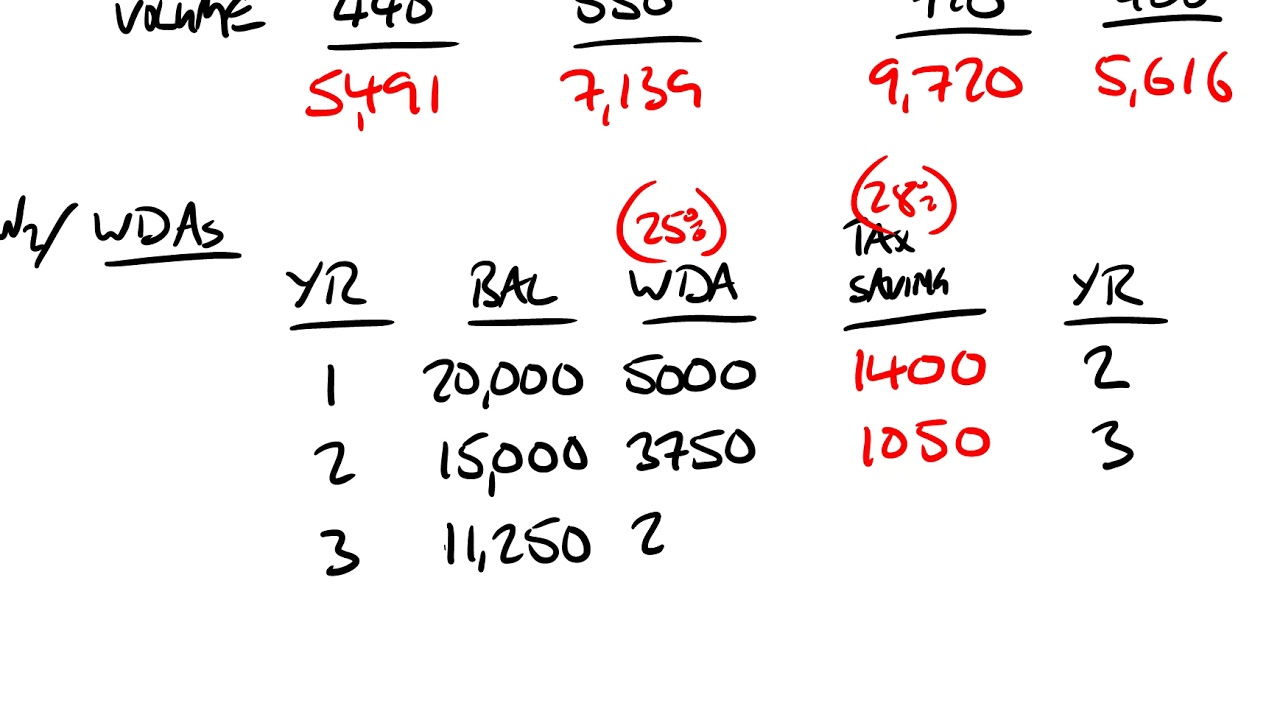 VOLUME 440 550 720
5,491 7,139 9,720 5,616
W2/ WDAs (25%) (28%)
YR BAL WDA TAX SAVING YR
1 20,000 5000 1400 2
2 15,000 3750 1050 3
3 11,250 2